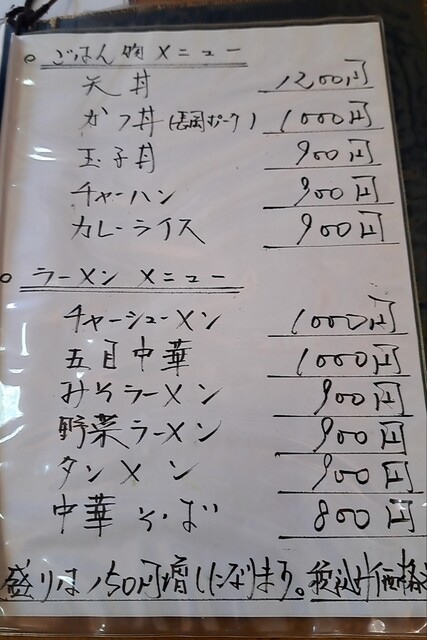 ごはん物 メニュー
天丼 1200円
かつ丼(長岡ポーク) 1000円
玉子丼 900円
チャーハン 900円
カレーライス 900円
ラーメン メニュー
チャーシューメン 1000円
五目中華 1000円
みそラーメン 900円
野菜ラーメン 900円
タンメン 900円
中華そば 800円
盛りは150円増しになります。税込み価格